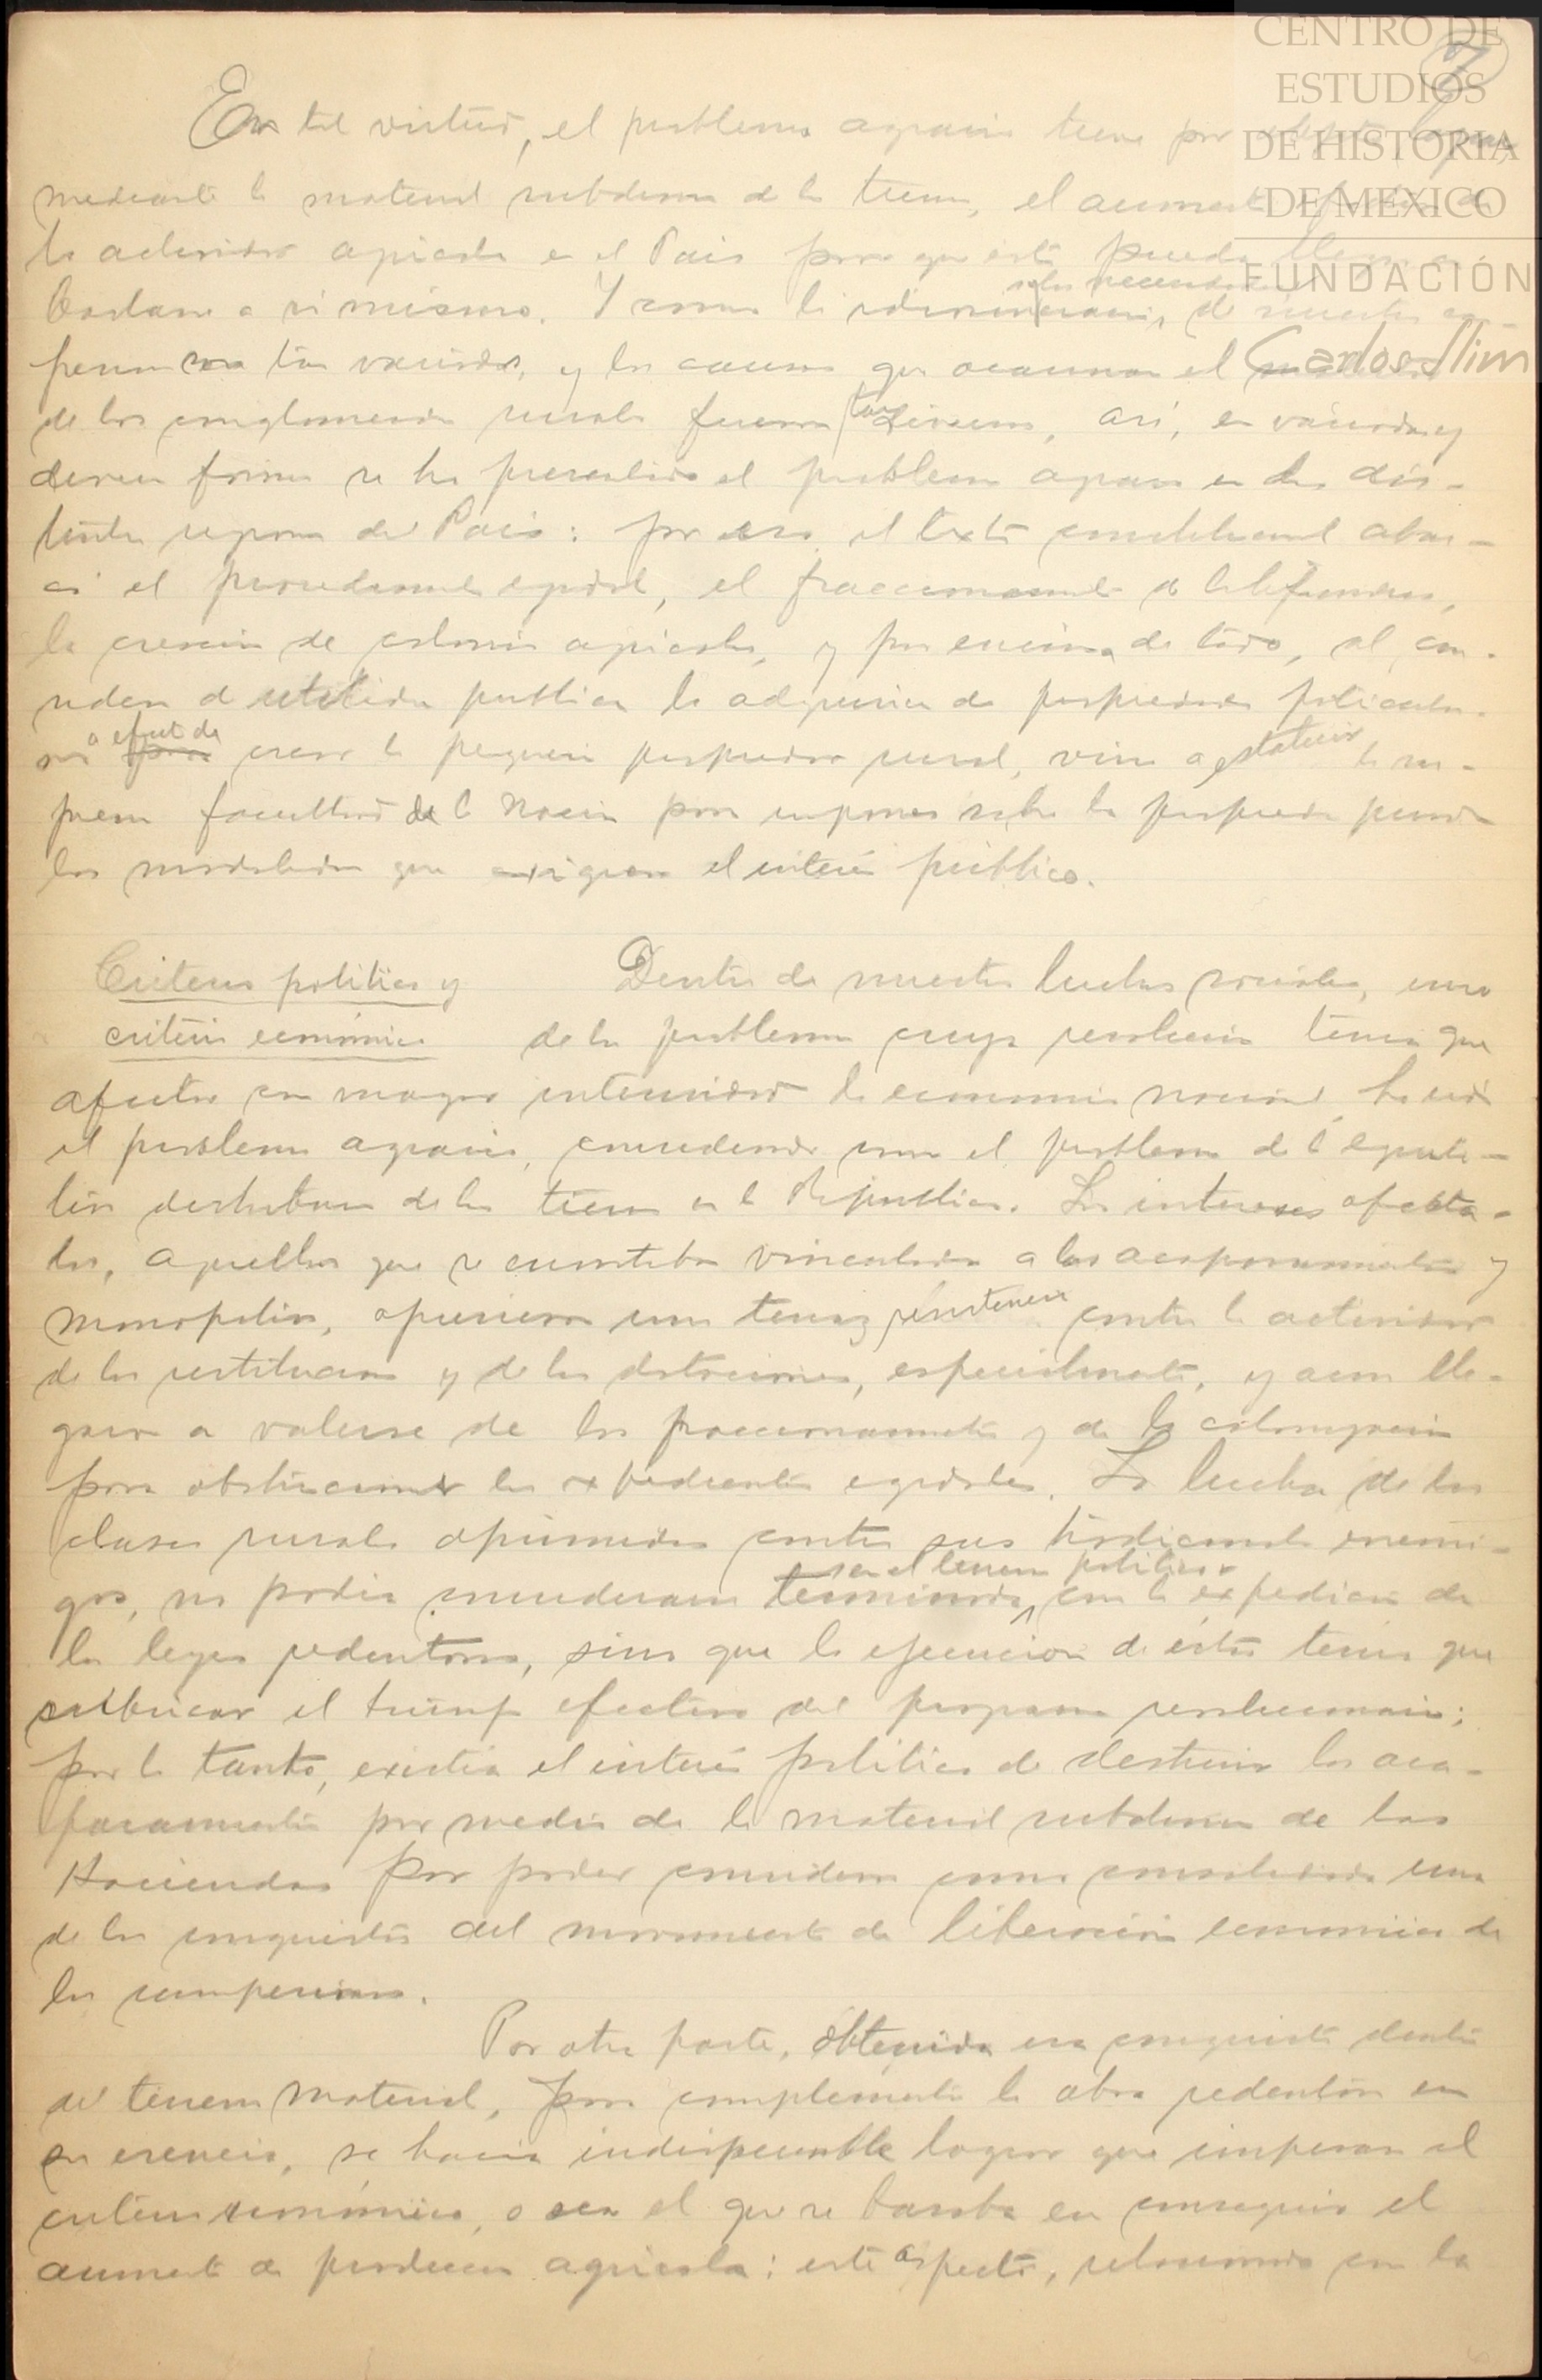 CENTRO DE
ESTUDIOS
DE HISTORIA
DE MEXICO
FUNDACIÓN
Carlos Slim
7
En tal virtud, el problema agrario tiene por
mediante la material subdivision de la tierra, el aumento de
la actividad agricola en el Pais para que este pueda llegar a
bastarse a si mismo. Y como la de nuestros cam-
pesinos son tan variadas, y las causas que ocasionan el
de los conglomerados rurales fueron tan diversas, así, en variadas y
diversas formas se ha presentado el problema agrario en las dis-
tintas regiones del Pais: por eso el texto constitucional abar-
có el procedimiento ejidal, el fraccionamiento de latifundios,
la creación de colonias agricolas, y por encima de todo, al con-
siderar de utilidad publica la adquisicion de propiedades particula-
res a efecto de crear la pequeña propiedad rural, vino a establecer la su-
prema facultad de la Nacion para imponer sobre la propiedad privada
las modalidades que exigiera el interés público.
Criterio politico y
criterio económico
Dentro de nuestras luchas sociales, uno
de los problemas cuya resolucion tenia que
afectar con mayor intensidad la economia nacional, ha sido
el problema agrario, considerado como el problema de la equita-
tiva distribucion de las tierras en la Republica. Los intereses afecta-
dos, aquellos que se encontraban vinculados a los acaparamientos y
monopolios, opusieron una tenaz resistencia contra la actividad
de las restituciones y de las dotaciones, especialmente, y aun lle-
garon a valerse de los fraccionamientos y de la colonizacion
para obstruccionar los expedientes ejidales. La lucha de las
clases rurales oprimidas contra sus tradicionales enemi-
gos, no podia considerarse terminada en el terreno politico con la expedicion de
las leyes redentoras, sino que la ejecucion de éstas tenia que
significar el triunfo efectivo del programa revolucionario;
por lo tanto, existia el interés politico de destruir los aca-
paramientos por medio de la material subdivision de las
Haciendas para poder considerar como consolidada una
de las conquistas del movimiento de liberación economica de
los campesinos.
Por otra parte, obtenida esa conquista dentro
del terreno material, para complementar la obra redentora en
su esencia, se hacia indispensable lograr que imperara el
criterio económico, o sea el que se basaba en conseguir el
aumento de produccion agricola: este aspecto, relacionado con la